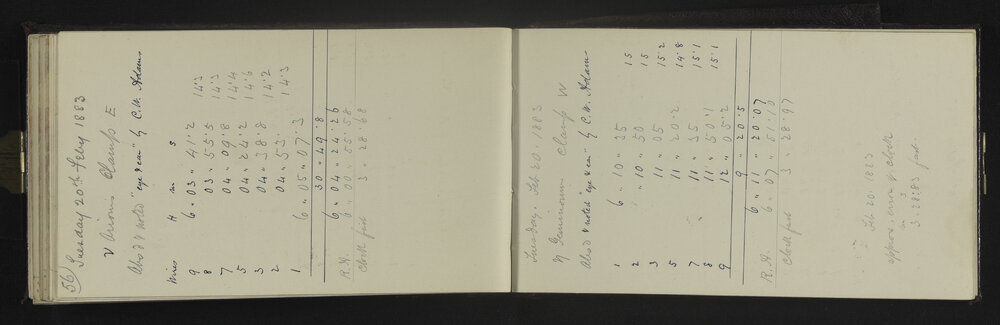 56 Tuesday 20th Feby 1883
ν Orionis Clamp E
Obs'd & noted "eye & ear" by C.W. Adams
Wires H m s
9 6 " 03 " 41 . 2 14.3
8 03 " 55.5 14.3
7 04 " 09.8 14.4
5 04 " 24.2 14.6
3 04 " 38.8 14.2
2 04 " 53. 14.3
1 6 " 05 " 07.3
30 " 49.8
6 " 04 " 24.26
R.A. 6 " 00 " 55.58
Clock fast 3 " 28.68
Tuesday. Feb 20. 1883
η Geminorum Clamp W
Obs'd & noted "eye & ear" by C.W. Adams
1 6 " 10 " 35 15
2 " 10 " 50 15
3 11 " 05 15.2
5 11 " 20.2 14.8
7 " 11 " 35 15.1
8 11 " 50.1 15.1
9 12 " 05.2
9 " 20.5
6 " 11 " 20.07
R.A. 6 " 07 " 51.10
Clock fast 3 " 28.97
Feb 20. 1883
approx. error of clock
m s
3.28.83 fast.